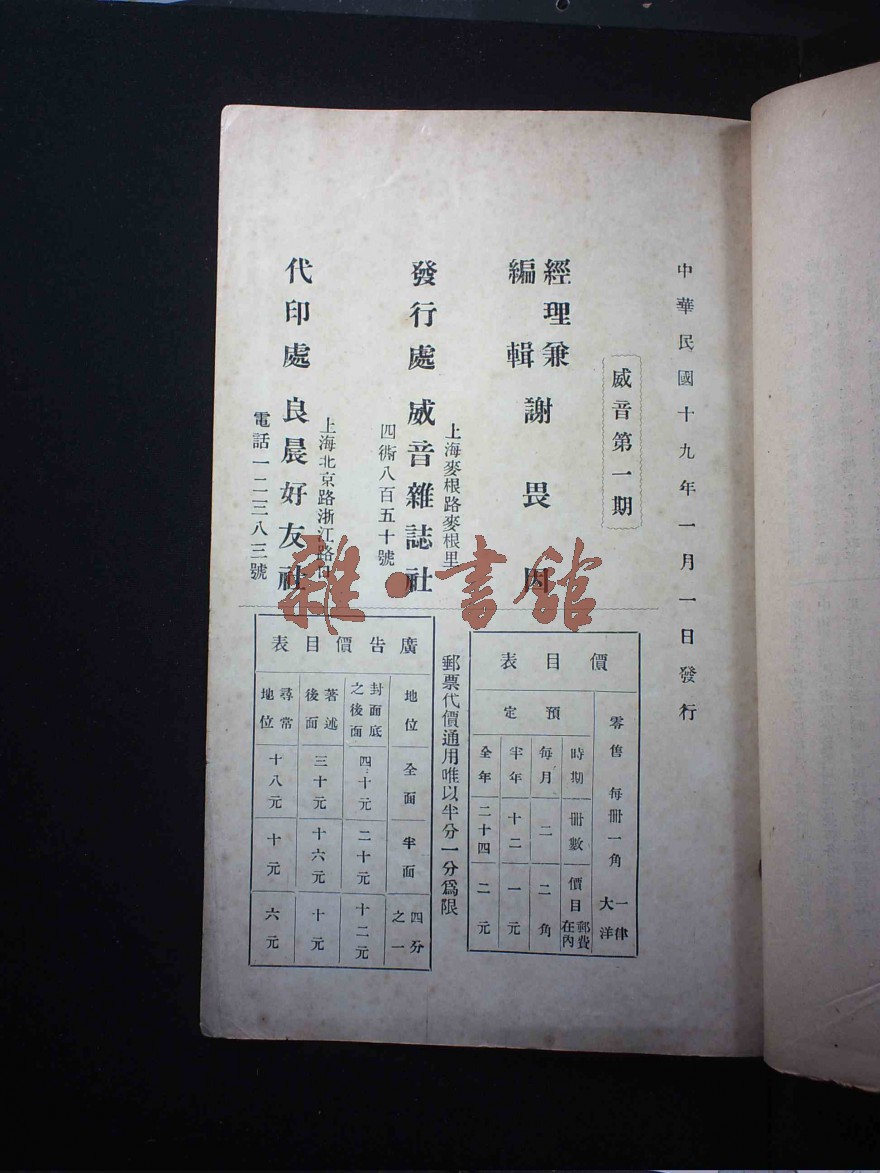 中華民國十九年一月一日發行
威音第一期
經理兼
編輯
謝畏因
上海麥根路麥根里
四衖八百五十號
發行處 威音雜誌社
上海北京路浙江路口
代印處 良晨好友社
電話一二三八三號
價目表
零售 每冊一角 一律大洋
預定
時期 冊數 價目 郵費在內
每月 二 二角
半年 十二 一元
全年 二十四 二元
郵票代價通用唯以半分一分爲限
廣告價目表
地位 全面 半面 四分之一
封面底之後面 四十元 二十元 十二元
著述後面 三十元 十六元 十元
尋常地位 十八元 十元 六元
雜·書館